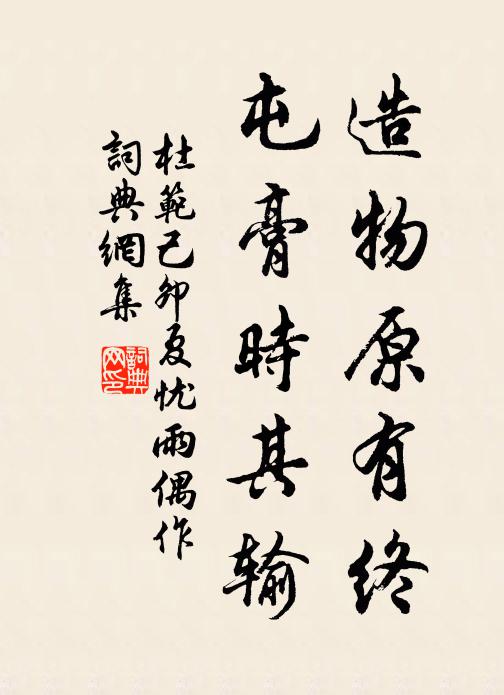 造物原有终
屯膏時其输
杜範己卯夏忧雨偶作
詞典網集
詞典网印